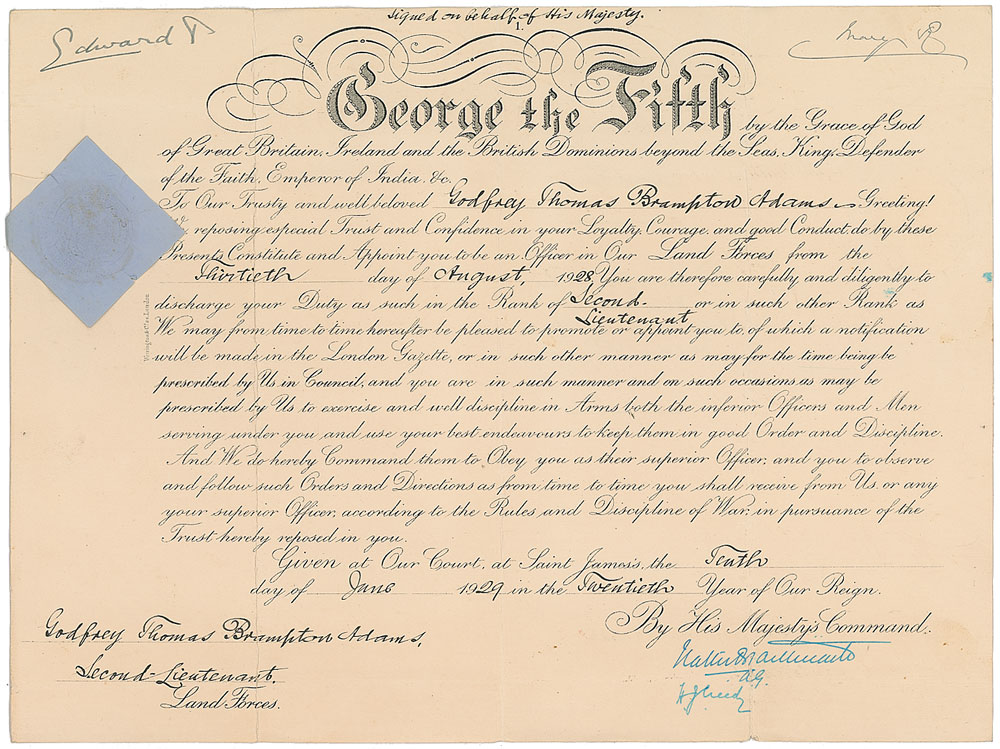 Signed on behalf of His Majesty.
Edward P
Mary R
George the Fifth by the Grace of God
of Great Britain, Ireland and the British Dominions beyond the Seas, King, Defender
of the Faith, Emperor of India, &c.
To Our Trusty and well beloved Godfrey Thomas Brampton Adams Greeting!
reposing especial Trust and Confidence in your Loyalty, Courage, and good Conduct, do by these
Presents Constitute and Appoint you to be an Officer in Our Land Forces from the
Thirtieth day of August, 1928. You are therefore carefully and diligently to
discharge your Duty as such in the Rank of Second- or in such other Rank as
Lieutenant
We may from time to time hereafter be pleased to promote or appoint you to, of which a notification
will be made in the London Gazette, or in such other manner as may for the time being be
prescribed by Us in Council, and you are in such manner and on such occasions as may be
prescribed by Us to exercise and well discipline in Arms both the inferior Officers and Men
serving under you and use your best endeavours to keep them in good Order and Discipline.
And We do hereby Command them to Obey you as their superior Officer, and you to observe
and follow such Orders and Directions as from time to time you shall receive from Us, or any
your superior Officer, according to the Rules and Discipline of War, in pursuance of the
Trust hereby reposed in you.
Given at Our Court, at Saint James's, the Tenth
day of June 1929 in the Twentieth Year of Our Reign.
By His Majesty's Command.
Godfrey Thomas Brampton Adams,
Second-Lieutenant.
Land Forces.
A.G.